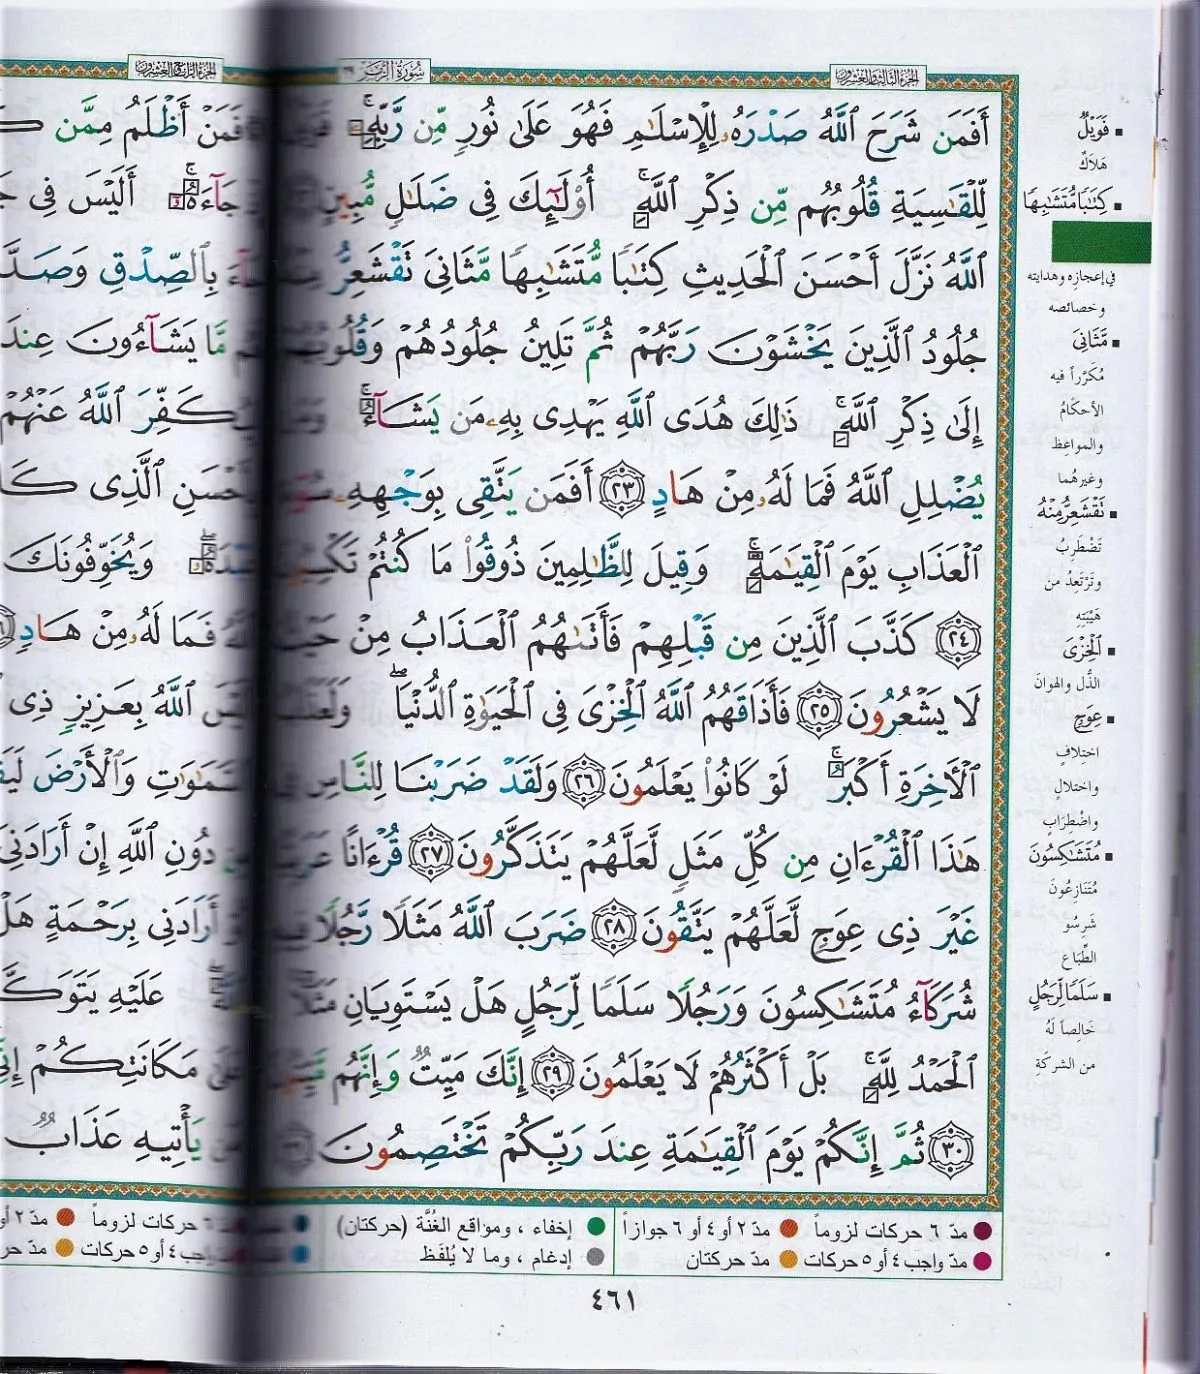 الجزء الثالث والعشرون
سورة الزمر ٣٩
أَفَمَن شَرَحَ ٱللَّهُ صَدْرَهُۥ لِلْإِسْلَٰمِ فَهُوَ عَلَىٰ نُورٍ مِّن رَّبِّهِۦ
لِّلْقَٰسِيَةِ قُلُوبُهُم مِّن ذِكْرِ ٱللَّهِ أُو۟لَٰٓئِكَ فِى ضَلَٰلٍ مُّبِينٍ
ٱللَّهُ نَزَّلَ أَحْسَنَ ٱلْحَدِيثِ كِتَٰبًا مُّتَشَٰبِهًا مَّثَانِىَ تَقْشَعِرُّ
جُلُودُ ٱلَّذِينَ يَخْشَوْنَ رَبَّهُمْ ثُمَّ تَلِينُ جُلُودُهُمْ
إِلَىٰ ذِكْرِ ٱللَّهِ ذَٰلِكَ هُدَى ٱللَّهِ يَهْدِى بِهِۦ مَن يَشَآءُ
يُضْلِلِ ٱللَّهُ فَمَا لَهُۥ مِنْ هَادٍ ٢٣ أَفَمَن يَتَّقِى بِوَجْهِهِۦ
ٱلْعَذَابِ يَوْمَ ٱلْقِيَٰمَةِ وَقِيلَ لِلظَّٰلِمِينَ ذُوقُوا۟ مَا كُنتُمْ
٢٤ كَذَّبَ ٱلَّذِينَ مِن قَبْلِهِمْ فَأَتَىٰهُمُ ٱلْعَذَابُ مِنْ
لَا يَشْعُرُونَ ٢٥ فَأَذَاقَهُمُ ٱللَّهُ ٱلْخِزْىَ فِى ٱلْحَيَوٰةِ ٱلدُّنْيَا
ٱلْءَاخِرَةِ أَكْبَرُ لَوْ كَانُوا۟ يَعْلَمُونَ ٢٦ وَلَقَدْ ضَرَبْنَا لِلنَّاسِ
هَٰذَا ٱلْقُرْءَانِ مِن كُلِّ مَثَلٍ لَّعَلَّهُمْ يَتَذَكَّرُونَ ٢٧ قُرْءَانًا
غَيْرَ ذِى عِوَجٍ لَّعَلَّهُمْ يَتَّقُونَ ٢٨ ضَرَبَ ٱللَّهُ مَثَلًا رَّجُلًا
شُرَكَآءُ مُتَشَٰكِسُونَ وَرَجُلًا سَلَمًا لِّرَجُلٍ هَلْ يَسْتَوِيَانِ
ٱلْحَمْدُ لِلَّهِ بَلْ أَكْثَرُهُمْ لَا يَعْلَمُونَ ٢٩ إِنَّكَ مَيِّتٌ وَإِنَّهُم
٣٠ ثُمَّ إِنَّكُمْ يَوْمَ ٱلْقِيَٰمَةِ عِندَ رَبِّكُمْ تَخْتَصِمُونَ
فَوَيْلٌ
هَلَاكٌ
كِتَٰبًا مُّتَشَٰبِهًا
في إعجازِه وهدايته
وخصائصه
مَّثَانِىَ
مُكَرَّراً فيه
الأحكامُ
والمواعِظ
وغيرهُما
تَقْشَعِرُّ مِنْهُ
تَضْطَرِبُ
وتَرْتَعِدُ من
هَيْبَتِه
ٱلْخِزْىَ
الذُّل والهوانَ
عِوَجٍ
اختِلافٍ
واختلالٍ
واضْطِرَابٍ
مُتَشَٰكِسُونَ
مُتَنَازِعُونَ
شَرِسُو
الطِّبَاعِ
سَلَمًا لِّرَجُلٍ
خَالِصاً لَهُ
من الشركَة
مدّ ٦ حركات لزوماً
مدّ ٢ أو ٤ أو ٦ جوازاً
إخفاء ، ومواقع الغُنَّة (حركتان)
مدّ واجب ٤ أو ٥ حركات
مدّ حركتان
إدغام ، وما لا يُلفَظ
٤٦١
أَظْلَمُ مِمَّن
أَلَيْسَ فِى
بِٱلصِّدْقِ وَصَدَّ
مَّا يَشَآءُونَ عِندَ
ٱللَّهُ عَنْهُمْ
ٱلَّذِى
وَيُخَوِّفُونَكَ
فَمَا لَهُۥ مِنْ هَادٍ
ٱللَّهُ بِعَزِيزٍ ذِى
وَٱلْأَرْضَ
دُونِ ٱللَّهِ إِنْ أَرَادَنِىَ
أَرَادَنِى بِرَحْمَةٍ هَلْ
عَلَيْهِ
مَكَانَتِكُمْ
يَأْتِيهِ عَذَابٌ